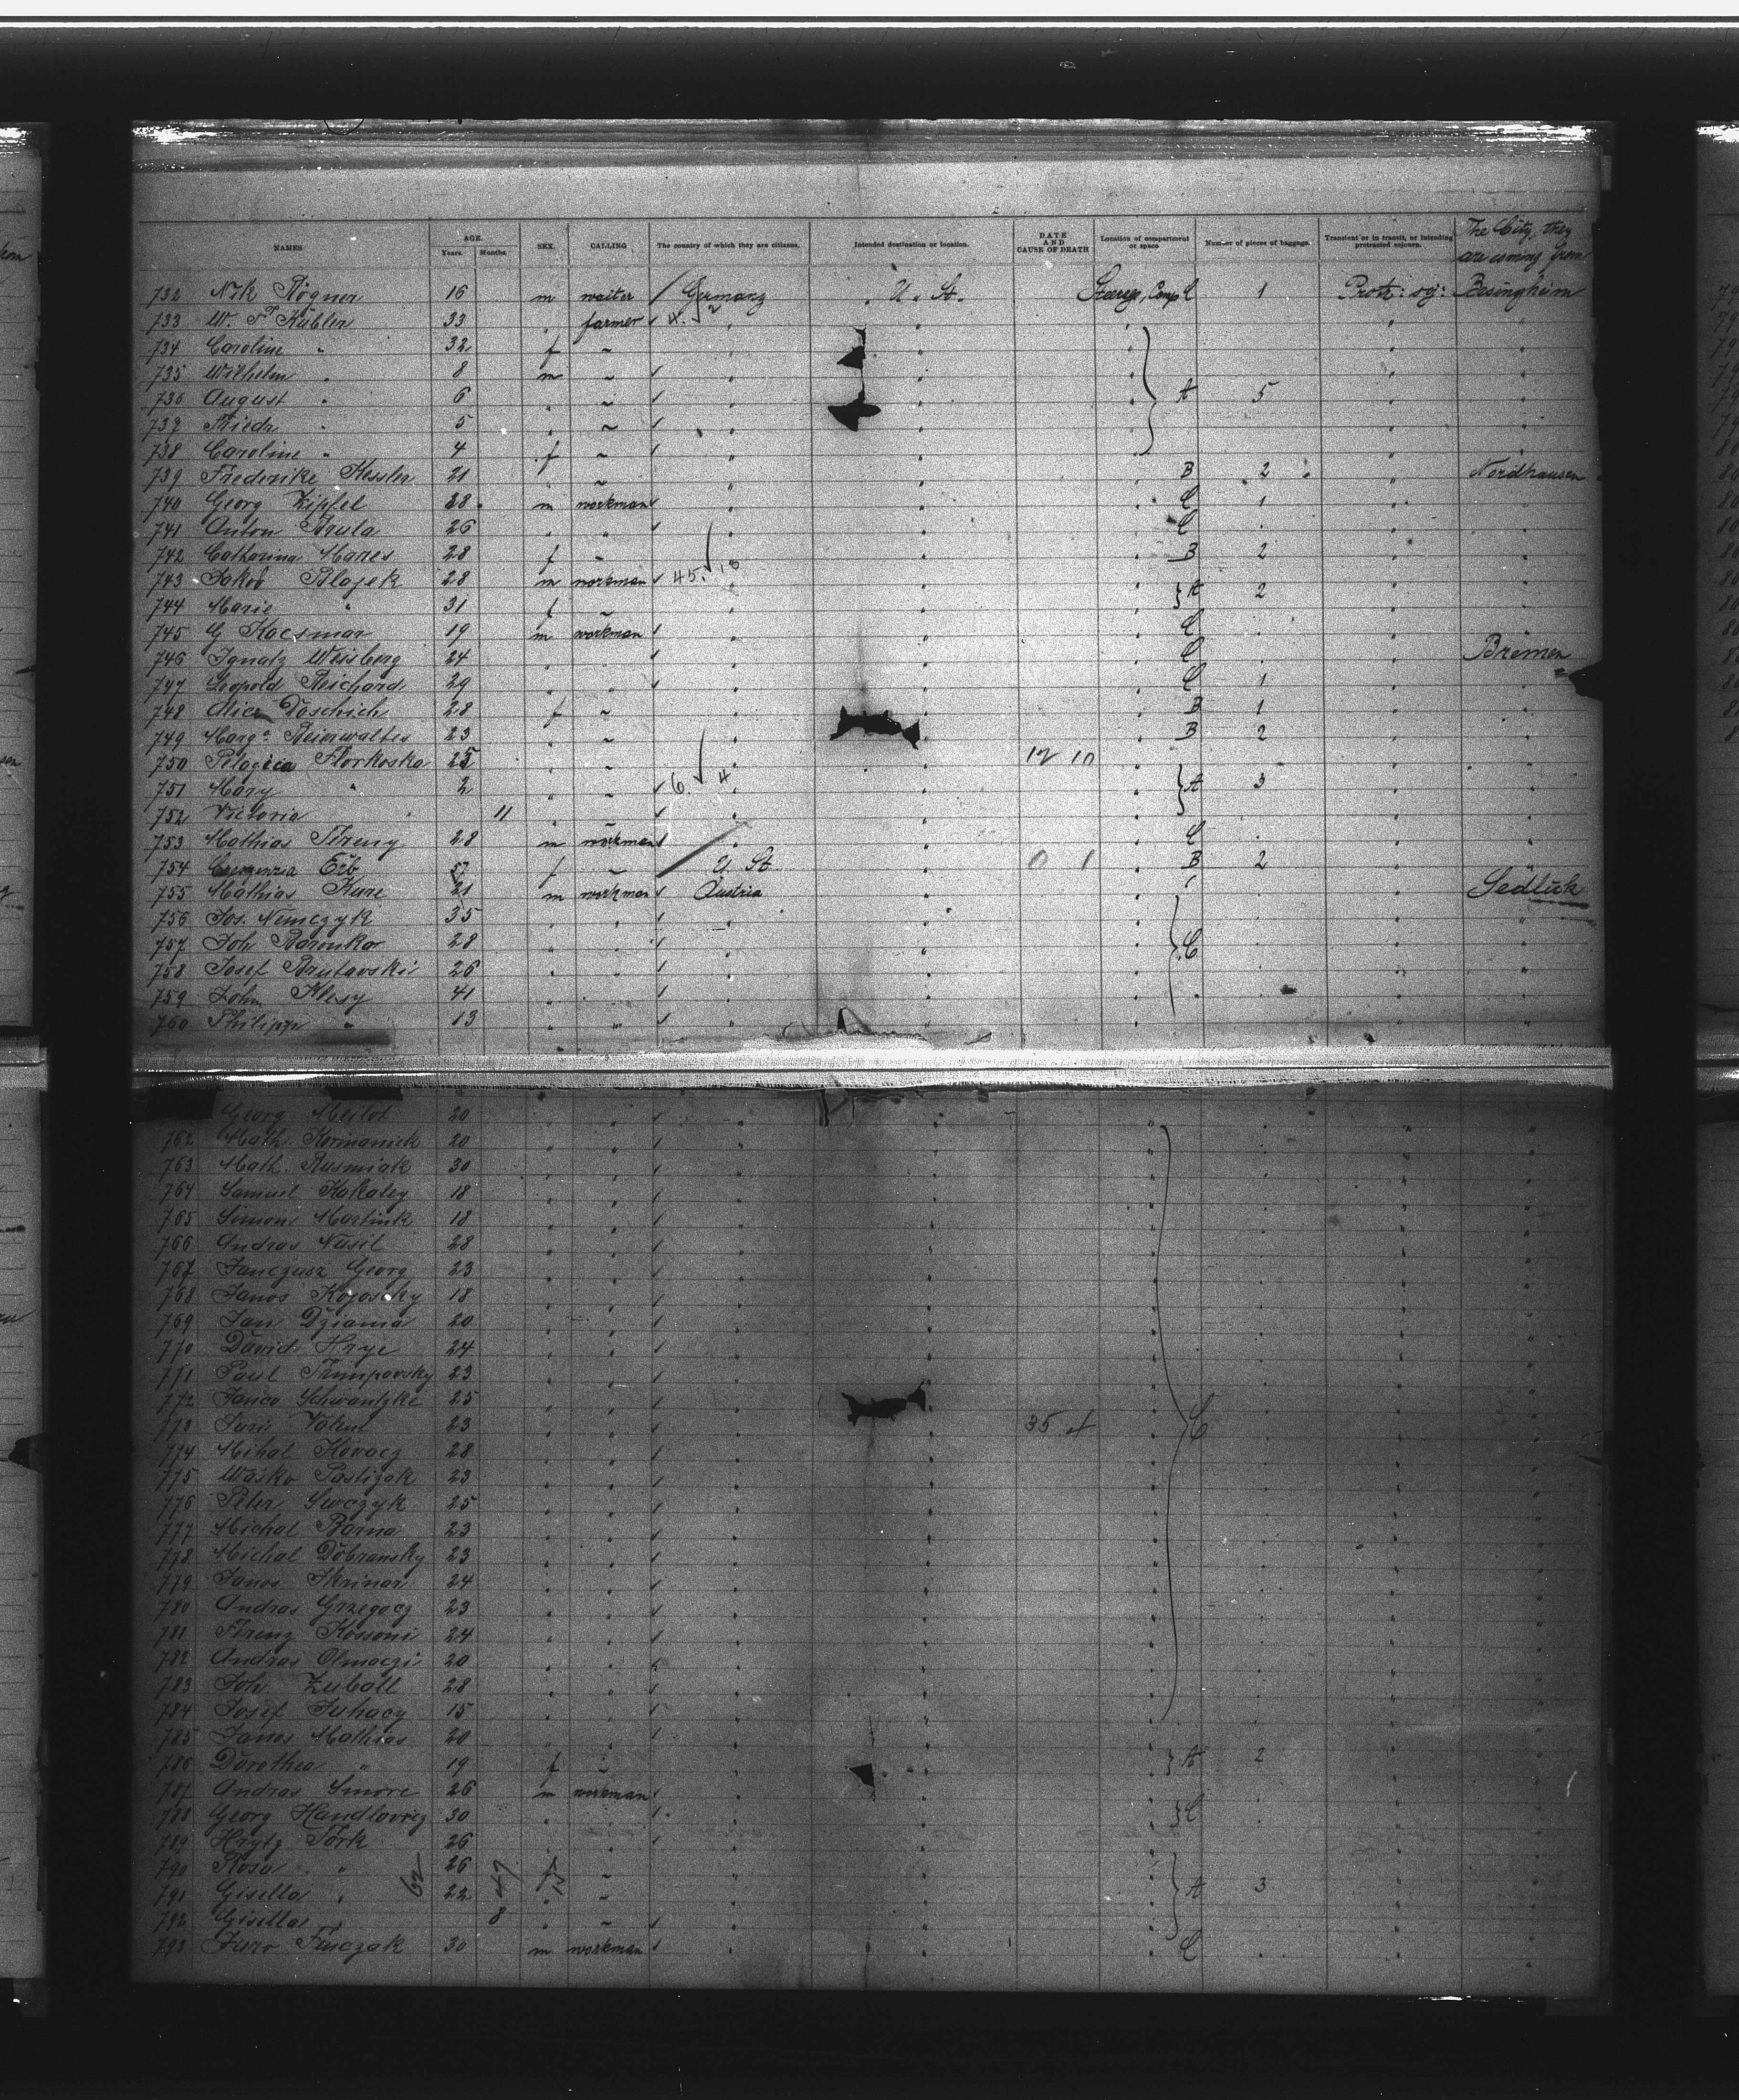 NAMES AGE. Years. Months. SEX. CALLING The country of which they are citizens. Intended destination or location. DATE AND CAUSE OF DEATH Location of compartment or space Number of pieces of baggage. Transient or in transit, or intending protracted sojourn. The City, they are coming from
732 Nik Rögner 16 m waiter Germany U. St. Steerge, Comp C 1 Protr: soj: Besingheim
733 W. F. Kübler 33 " farmer "
734 Caroline " 32 f ~ "
735 Wilhelm " 8 m ~ "
736 August " 6 " ~ " A 5
737 Friedr. " 5 " ~ "
738 Caroline " 4 f ~ "
739 Frederike Kessler 21 " ~ " B 2 Nordhausen
740 Georg Zipfel 28 m workman " C 1
741 Anton 26 " " " C "
742 Catharina Harres 28 f ~ " B 2
743 Jakob Blajek 28 m workman " A 2
744 Marie " 31 f ~ "
745 G Kocsmar 19 m workman " C "
746 Ignatz Weisberg 24 " " " C " Bremen
747 Leopold Reichard 29 " " " C 1
748 Alice Doschich 28 f ~ " B 1
749 Marg. Beierwaltes 23 " ~ " B 2
750 Pelagiea Florkoska 25 " ~ " 12 10
751 Mary " 2 " ~ " A 3
752 Victoria " 11 " ~ "
753 Mathias 28 m workman " C "
754 Erb 57 f ~ U. St. 0 1 B 2
755 Mathias Kure 21 m workman Austria " Sedlück
756 Jos. Nemczyk 35 " " "
757 Joh Baronka 28 " " " C
758 Josef Brutavski 26 " " "
759 John Klesy 41 " " "
760 Philipp " 13 " " "
Georg Meilot 20 " " "
762 Math. Kormaniek 20 " " "
763 Math. Rusmiak 30 " " "
764 Samuel Kokaley 18 " " "
765 Simon Martink 18 " " "
766 Andras Nusil 28 " " "
767 Janczusz Georg 23 " " "
768 Janos Kojoschy 18 " " "
769 Jan Dziama 20 " " "
770 David Hrye 24 " " "
771 Paul Trimpovsky 23 " " "
772 Janco Schwantzke 25 " " "
773 Juri Valent 23 " " " 35 4 C
774 Mihal Kovacz 28 " " "
775 Wasko Pastizak 23 " " "
776 Peter Swczyk 25 " " "
777 Michal Borna 23 " " "
778 Michal Dobransky 23 " " "
779 Janos Skrinar 24 " " "
780 Andras Grzegocz 23 " " "
781 Ferenz Kossoni 24 " " "
782 Andras Olmaczi 20 " " "
783 Joh. Zuball 28 " " "
784 Josef Juhacy 15 " " "
785 Janos Mathias 20 " " "
786 Dorothea " 19 f ~ " A 2
787 Andras Smore 26 m workman "
788 Georg Handlovicz 30 " " " C
789 Hrytz Törk 26 " " "
790 Rosa " 26 f ~ "
791 Gisella " 22 " ~ " A 3
792 Gisella " 8 " ~ "
793 Juro Finczak 30 m workman " C "